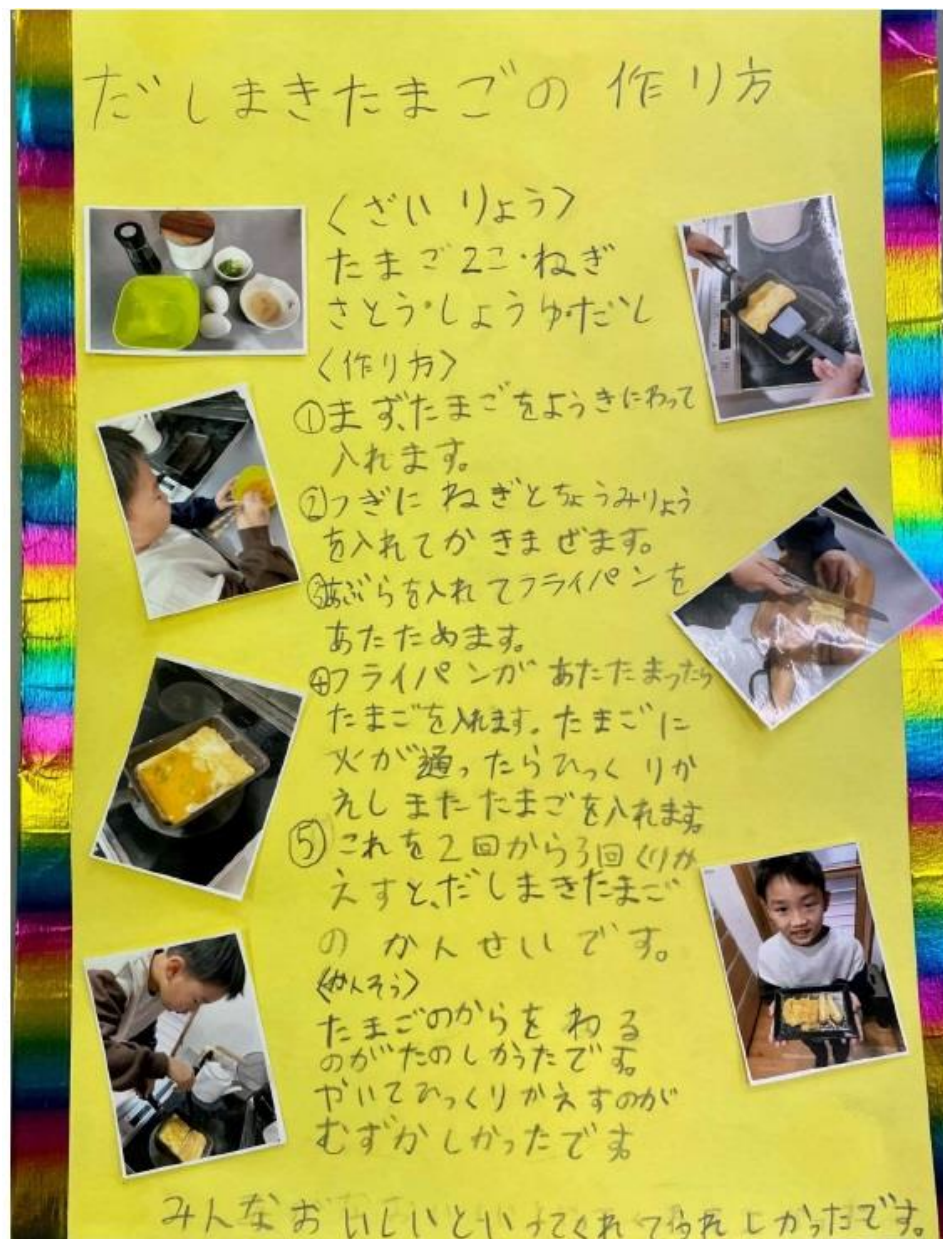 だしまきたまごの作り方
〈ざいりょう〉
たまご2こ・ねぎ
さとう・しょうゆ・だし
〈作り方〉
①まず、たまごをようきにわって
入れます。
②つぎにねぎとちょうみりょう
を入れてかきまぜます。
③あぶらを入れてフライパンを
あたためます。
④フライパンがあたたまったら
たまごを入れます。たまごに
火が通ったらひっくりか
えしまたたまごを入れます。
⑤これを2回から3回くりか
えすと、だしまきたまご
のかんせいです。
〈かんそう〉
たまごのからをわる
のがたのしかったです。
やいてひっくりかえすのが
むずかしかったです
みんなおいしいといってくれてうれしかったです。